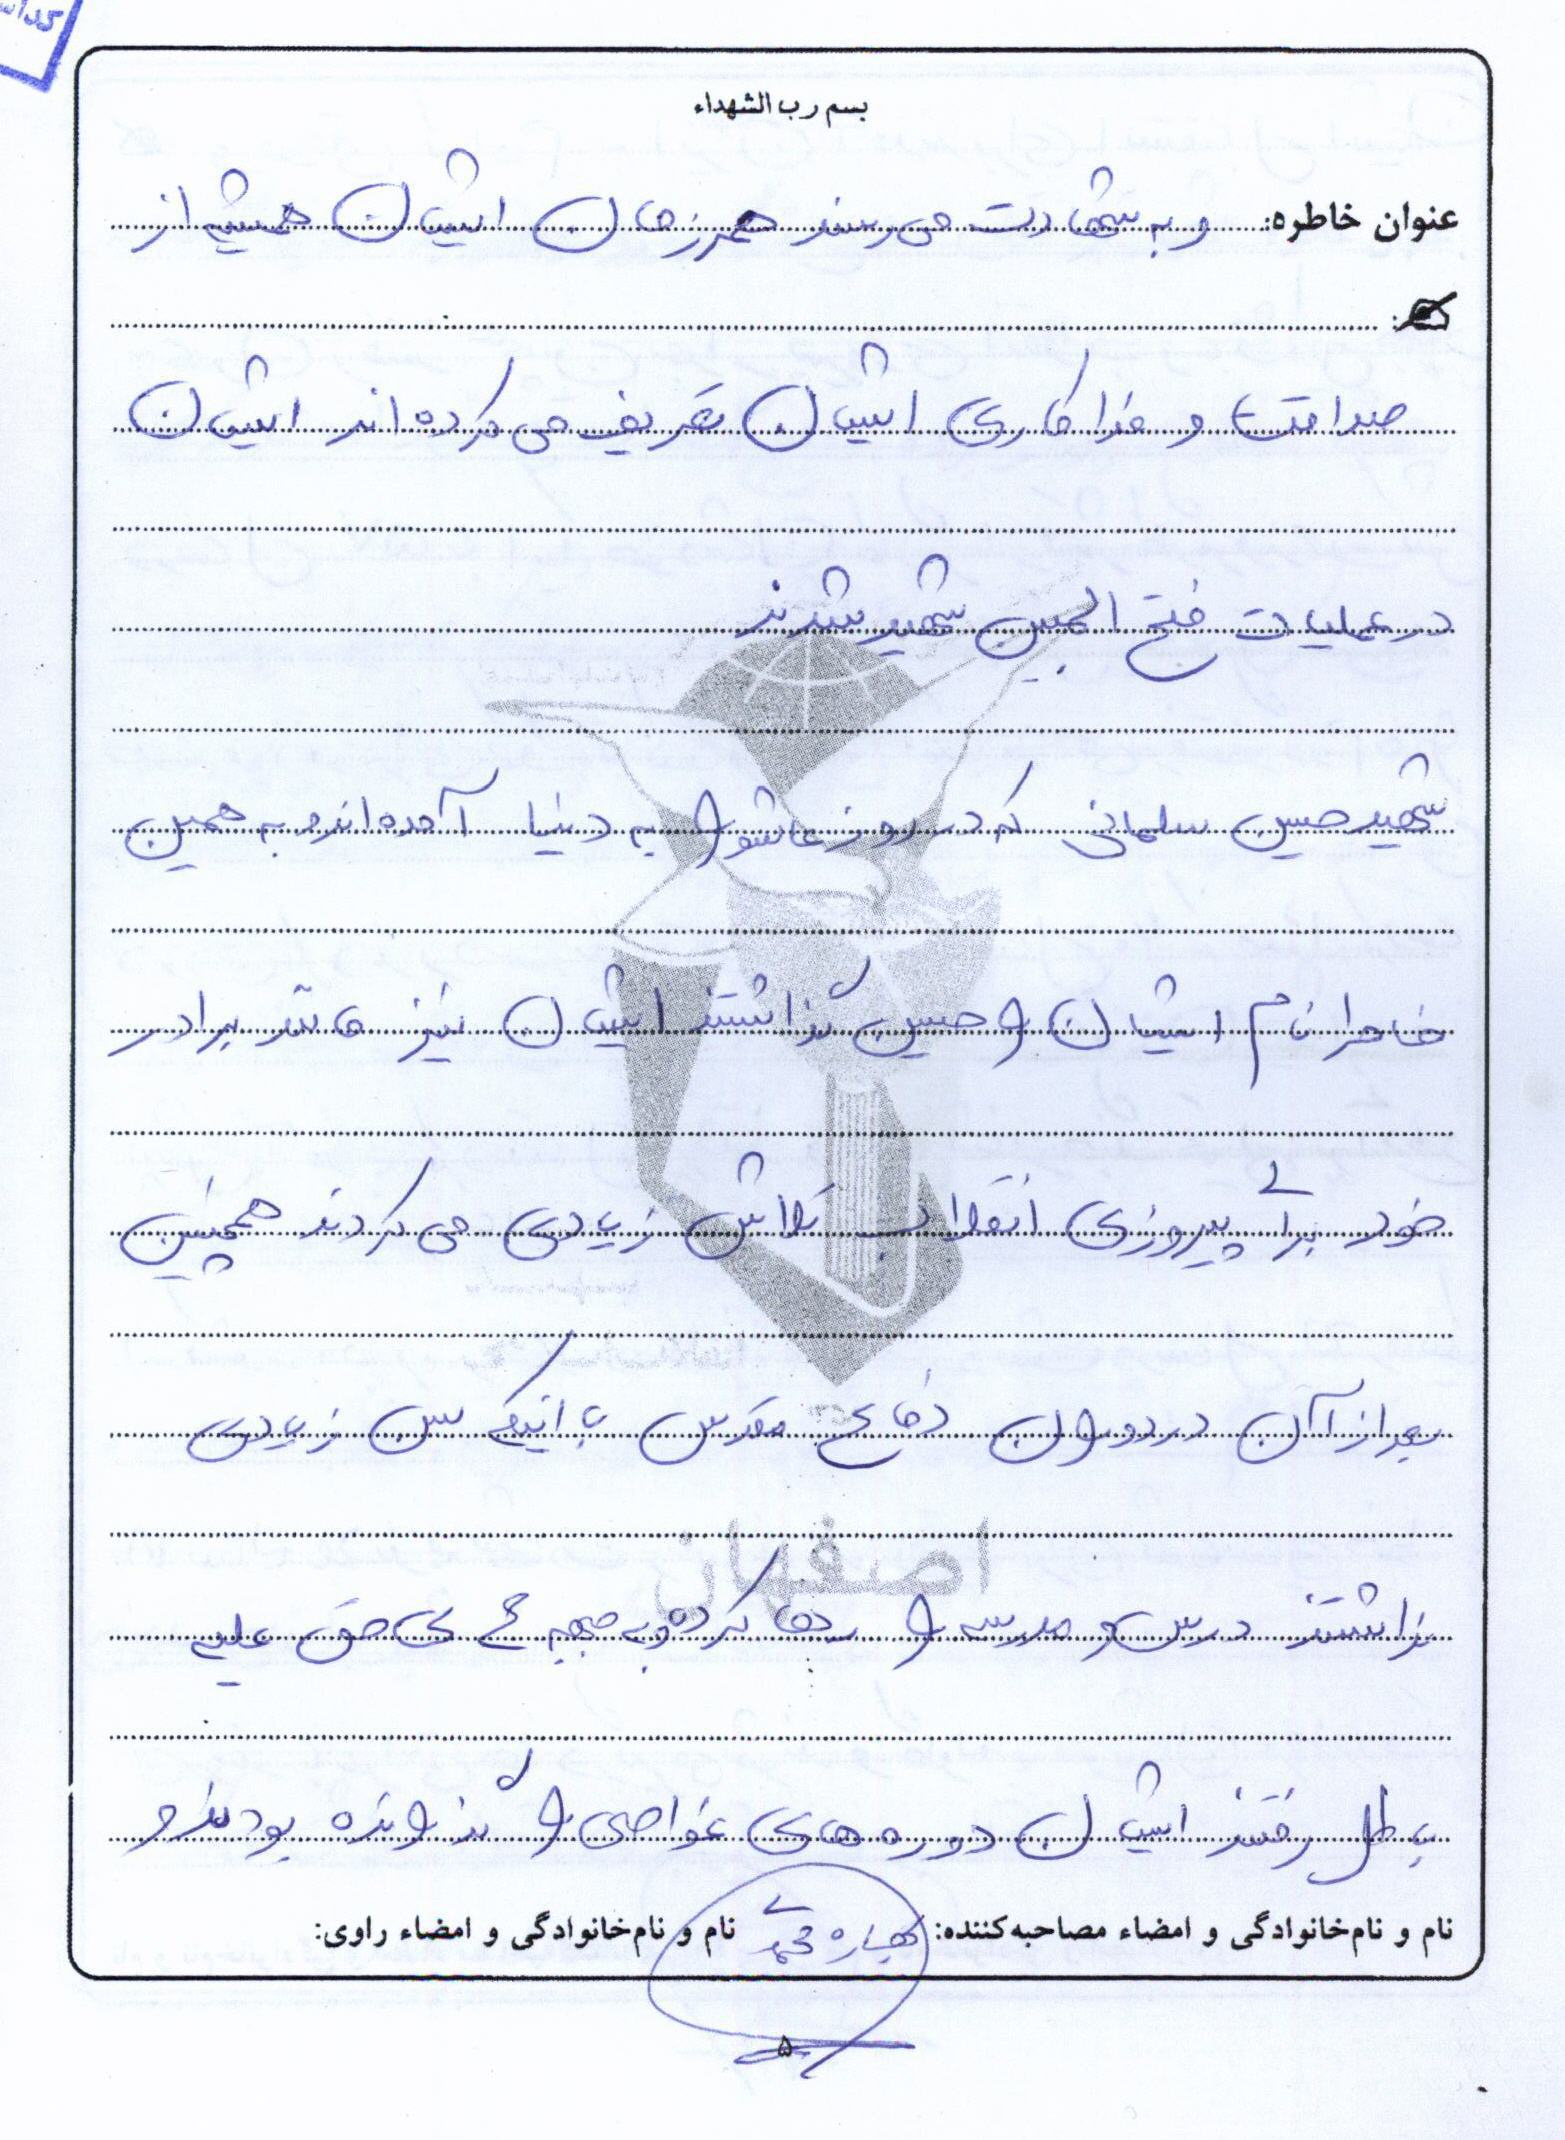 بسم رب الشهداء
عنوان خاطره: و به شهادت می رسند همرزمان ایشان همیشه از
صداقت و فداکاری ایشان تعریف می کرده اند ایشان
در عملیات فتح المبین شهید شدند
شهید حسین سلمانی که در روز عاشورا به دنیا آمده اند و به همین
خاطر نام ایشان را حسین گذاشتند ایشان نیز مانند برادر
خود برای پیروزی انقلاب تلاش زیادی می کردند همچنین
بعد از آن در دوران دفاع مقدس با اینکه سن زیادی
نداشتند درس و مدرسه را رها کرده و به جبهه های حق علیه
باطل رفتند ایشان دوره های غواصی را گذرانده بودند و
اصفهان
نام و نام‌خانوادگی و امضاء مصاحبه‌کننده: بهاره محمدی نام و نام‌خانوادگی و امضاء راوی:
۵